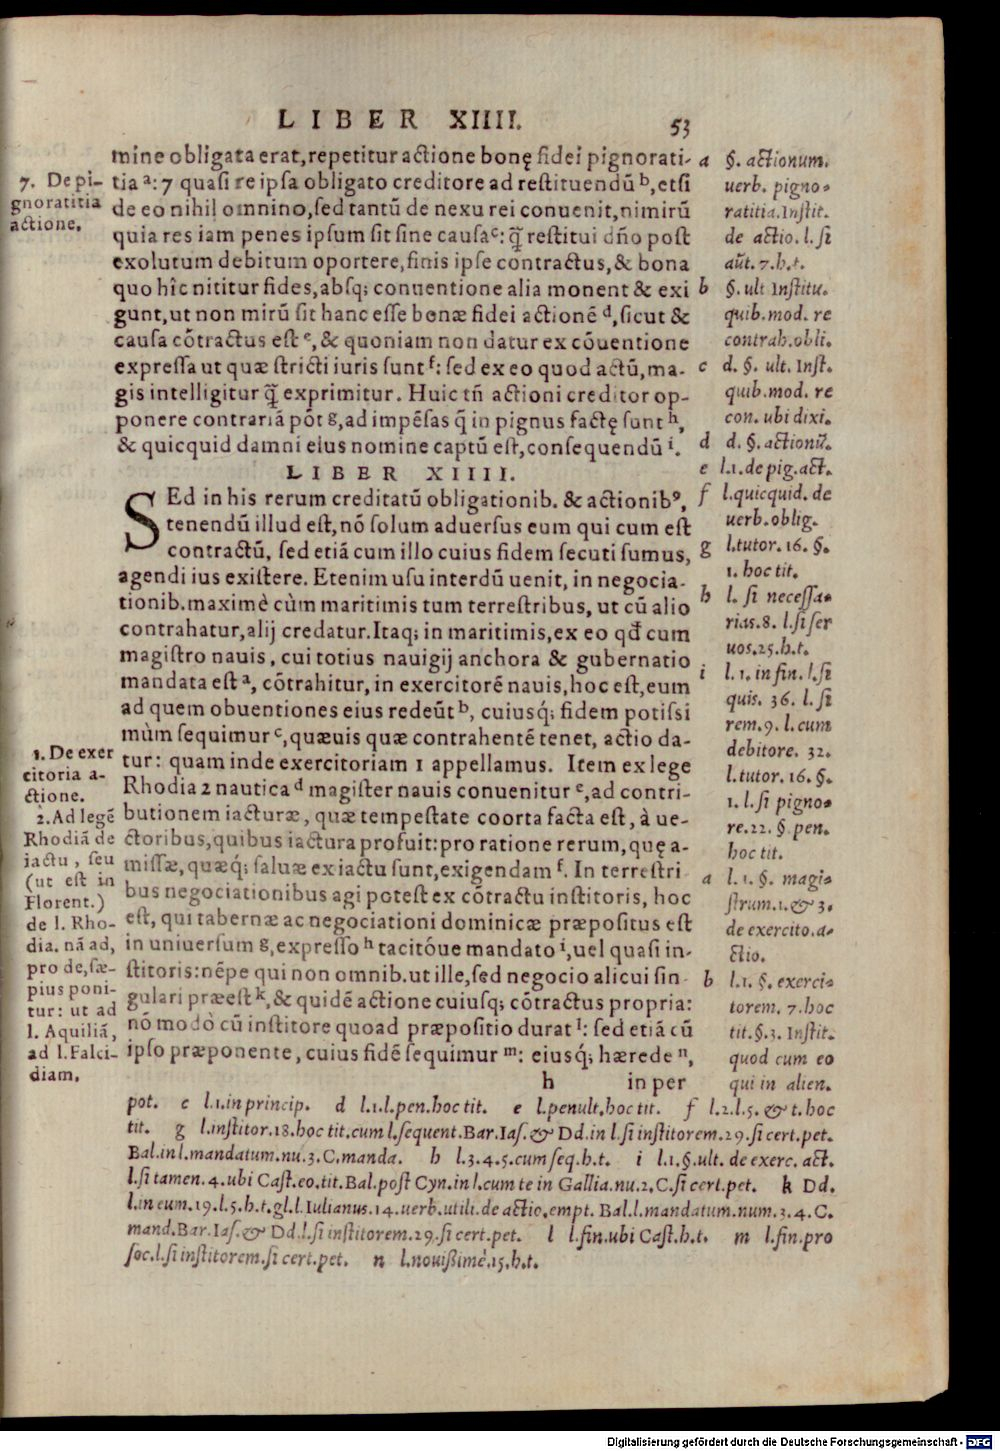 LIBER XIIII. 53
mine obligata erat, repetitur actione bonę fidei pignorati-
tia a: 7 quasi re ipsa obligato creditore ad restituendū b, etsi
de eo nihil omnino, sed tantū de nexu rei conuenit, nimirū
quia res iam penes ipsum sit sine causa c: q̃ restitui dño post
exolutum debitum oportere, finis ipse contractus, & bona
quo hîc nititur fides, absq; conuentione alia monent & exi
gunt, ut non mirū sit hanc esse bonæ fidei actionē d, sicut &
causa cōtractus est e, & quoniam non datur ex cōuentione
expressa ut quæ stricti iuris sunt f: sed ex eo quod actū, ma-
gis intelligitur q̃ exprimitur. Huic tñ actioni creditor op-
ponere contrariā pōt g, ad impēsas q̃ in pignus factę sunt h,
& quicquid damni eius nomine captū est, consequendū i.
LIBER XIIII.
SEd in his rerum creditatū obligationib. & actionibꝰ,
tenendū illud est, nō solum aduersus eum qui cum est
contractū, sed etiā cum illo cuius fidem secuti sumus,
agendi ius existere. Etenim usu interdū uenit, in negocia-
tionib. maximè cùm maritimis tum terrestribus, ut cū alio
contrahatur, alij credatur. Itaq; in maritimis, ex eo qđ cum
magistro nauis, cui totius nauigij anchora & gubernatio
mandata est a, cōtrahitur, in exercitorē nauis, hoc est, eum
ad quem obuentiones eius redeūt b, cuiusq́; fidem potissi
mùm sequimur c, quæuis quæ contrahentē tenet, actio da-
tur: quam inde exercitoriam 1 appellamus. Item ex lege
Rhodia 2 nautica d magister nauis conuenitur e, ad contri-
butionem iacturæ, quæ tempestate coorta facta est, à ue-
ctoribus, quibus iactura profuit: pro ratione rerum, quę a-
missæ, quæq́; saluæ ex iactu sunt, exigendam f. In terrestri
bus negociationibus agi potest ex cōtractu institoris, hoc
est, qui tabernæ ac negociationi dominicæ præpositus est
in uniuersum g, expresso h tacitóue mandato i, uel quasi in-
stitoris: nēpe qui non omnib. ut ille, sed negocio alicui sin
gulari præest k, & quidē actione cuiusq; cōtractus propria:
nō modò cū institore quoad præpositio durat l: sed etiā cū
ipso præponente, cuius fidē sequimur m: eiusq́; hærede n,
h in per
7. De pi-
gnoratitia
actione.
1. De exer
citoria a-
ctione.
2. Ad legē
Rhodiā de
iactu, seu
(ut est in
Florent.)
de l. Rho-
dia. nā ad,
pro de, sæ-
pius poni-
tur: ut ad
l. Aquiliā,
ad l. Falci-
diam.
a §. actionum.
uerb. pigno-
ratitia. Instit.
de actio. l. si
aūt. 7. h. t.
b §. ult Institu.
quib. mod. re
contrah. obli.
c d. §. ult. Inst.
quib. mod. re
con. ubi dixi.
d d. §. actionū.
e l. 1. de pig. act.
f l. quicquid. de
uerb. oblig.
g l. tutor. 16. §.
1. hoc tit.
h l. si necessa-
rias. 8. l. si ser
uos. 25. h. t.
i l. 1. in fin. l. si
quis. 36. l. si
rem. 9. l. cum
debitore. 32.
l. tutor. 16. §.
1. l. si pigno-
re. 22. § pen.
hoc tit.
a l. 1. §. magi-
strum. 1. & 3.
de exercito. a-
ctio.
b l. 1. §. exerci-
torem. 7. hoc
tit. §. 3. Instit.
quod cum eo
qui in alien.
pot. c l. 1. in princip. d l. 1. l. pen. hoc tit. e l. penult. hoc tit. f l. 2. l. 5. & t. hoc
tit. g l. institor. 18. hoc tit. cum l. sequent. Bar. Ias. & Dd. in l. si institorem. 29. si cert. pet.
Bal. in l. mandatum. nu. 3. C. manda. h l. 3. 4. 5. cum seq. h. t. i l. 1. §. ult. de exerc. act.
l. si tamen. 4. ubi Cast. eo. tit. Bal. post Cyn. in l. cum te in Gallia. nu. 2. C. si cert. pet. k Dd.
l. in eum. 19. l. 5. h. t. gl. l. Iulianus. 14. uerb. utili. de actio. empt. Bal. l. mandatum. num. 3. 4. C.
mand. Bar. Ias. & Dd. l. si institorem. 29. si cert. pet. l l. fin. ubi Cast. h. t. m l. fin. pro
soc. l. si institorem. si cert. pet. n l. nouißimè. 15. h. t.
Digitalisierung gefördert durch die Deutsche Forschungsgemeinschaft - DFG